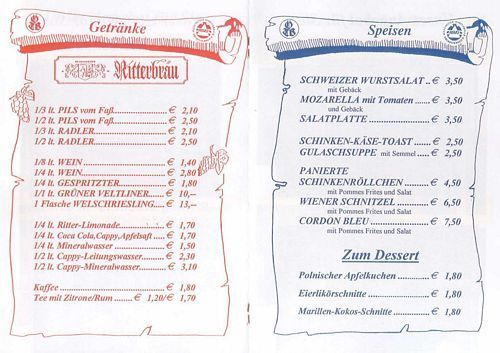 Getränke
Ritterbräu
1/3 lt. PILS vom Faß..................€ 2,10
1/2 lt. PILS vom Faß..................€ 2,50
1/3 lt. RADLER........................€ 2,10
1/2 lt. RADLER........................€ 2,50
1/8 lt. WEIN..........................€ 1,40
1/4 lt. WEIN..........................€ 2,80
1/4 lt. GESPRITZTER...................€ 1,80
1/1 lt. GRÜNER VELTLINER..............€ 10,--
1 Flasche WELSCHRIESLING..............€ 13,--
1/4 lt. Ritter-Limonade...............€ 1,70
1/4 lt. Coca Cola,Cappy,Apfelsaft.....€ 1,70
1/4 lt. Mineralwasser.................€ 1,50
1/2 lt. Cappy-Leitungswasser..........€ 2,30
1/2 lt. Cappy-Mineralwasser...........€ 3,10
Kaffee................................€ 1,80
Tee mit Zitrone/Rum.......€ 1,20/€ 1,70
Speisen
SCHWEIZER WURSTSALAT ..€ 3,50
mit Gebäck
MOZARELLA mit Tomaten ....€ 3,50
und Gebäck
SALATPLATTE ..................€ 3,50
SCHINKEN-KÄSE-TOAST .....€ 2,50
GULASCHSUPPE mit Semmel ...€ 2,50
PANIERTE
SCHINKENRÖLLCHEN ..........€ 4,50
mit Pommes Frites und Salat
WIENER SCHNITZEL.............€ 6,50
mit Pommes Frites und Salat
CORDON BLEU ..................€ 7,50
mit Pommes Frites und Salat
Zum Dessert
Polnischer Apfelkuchen ........€ 1,80
Eierlikörschnitte .................€ 1,80
Marillen-Kokos-Schnitte ........€ 1,80